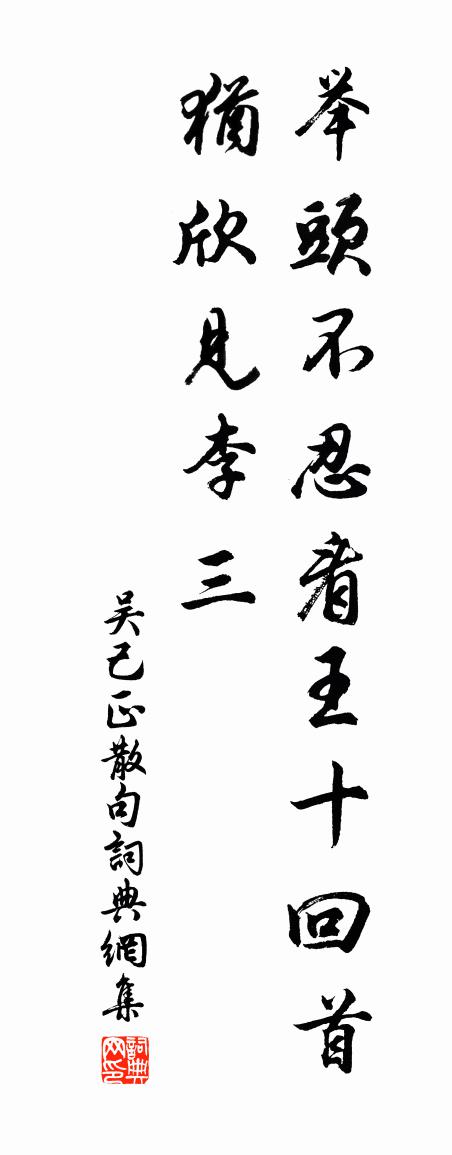 举頭不忍看王十回首
猶欣見李三
吴己正散句詞典網集
詞典网印